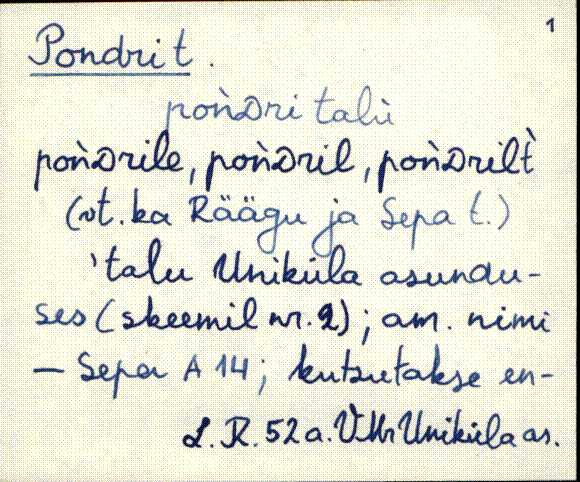 1
Pondri t.
poǹᴅri talù
poǹᴅrile, poǹᴅril, poǹᴅrilt̀
(vt. ka Räägu ja Sepa t.)
'talu Uniküla asundu-
ses (skeemil nr. 2); am. nimi
— Sepa A 14; kutsutakse en-
L. R. 52 a. VMr Uniküla as.